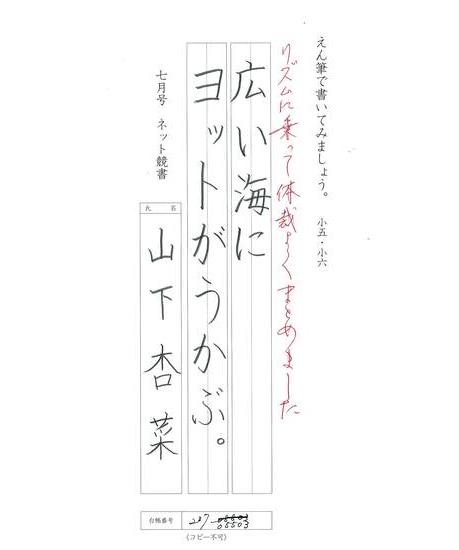 えん筆で書いてみましょう。 小五・小六
リズムに乗って体裁よくまとめました
広い海に
ヨットがうかぶ。
七月号 ネット競書
氏名
山下杏菜
台帳番号
227-05503
(コピー不可)